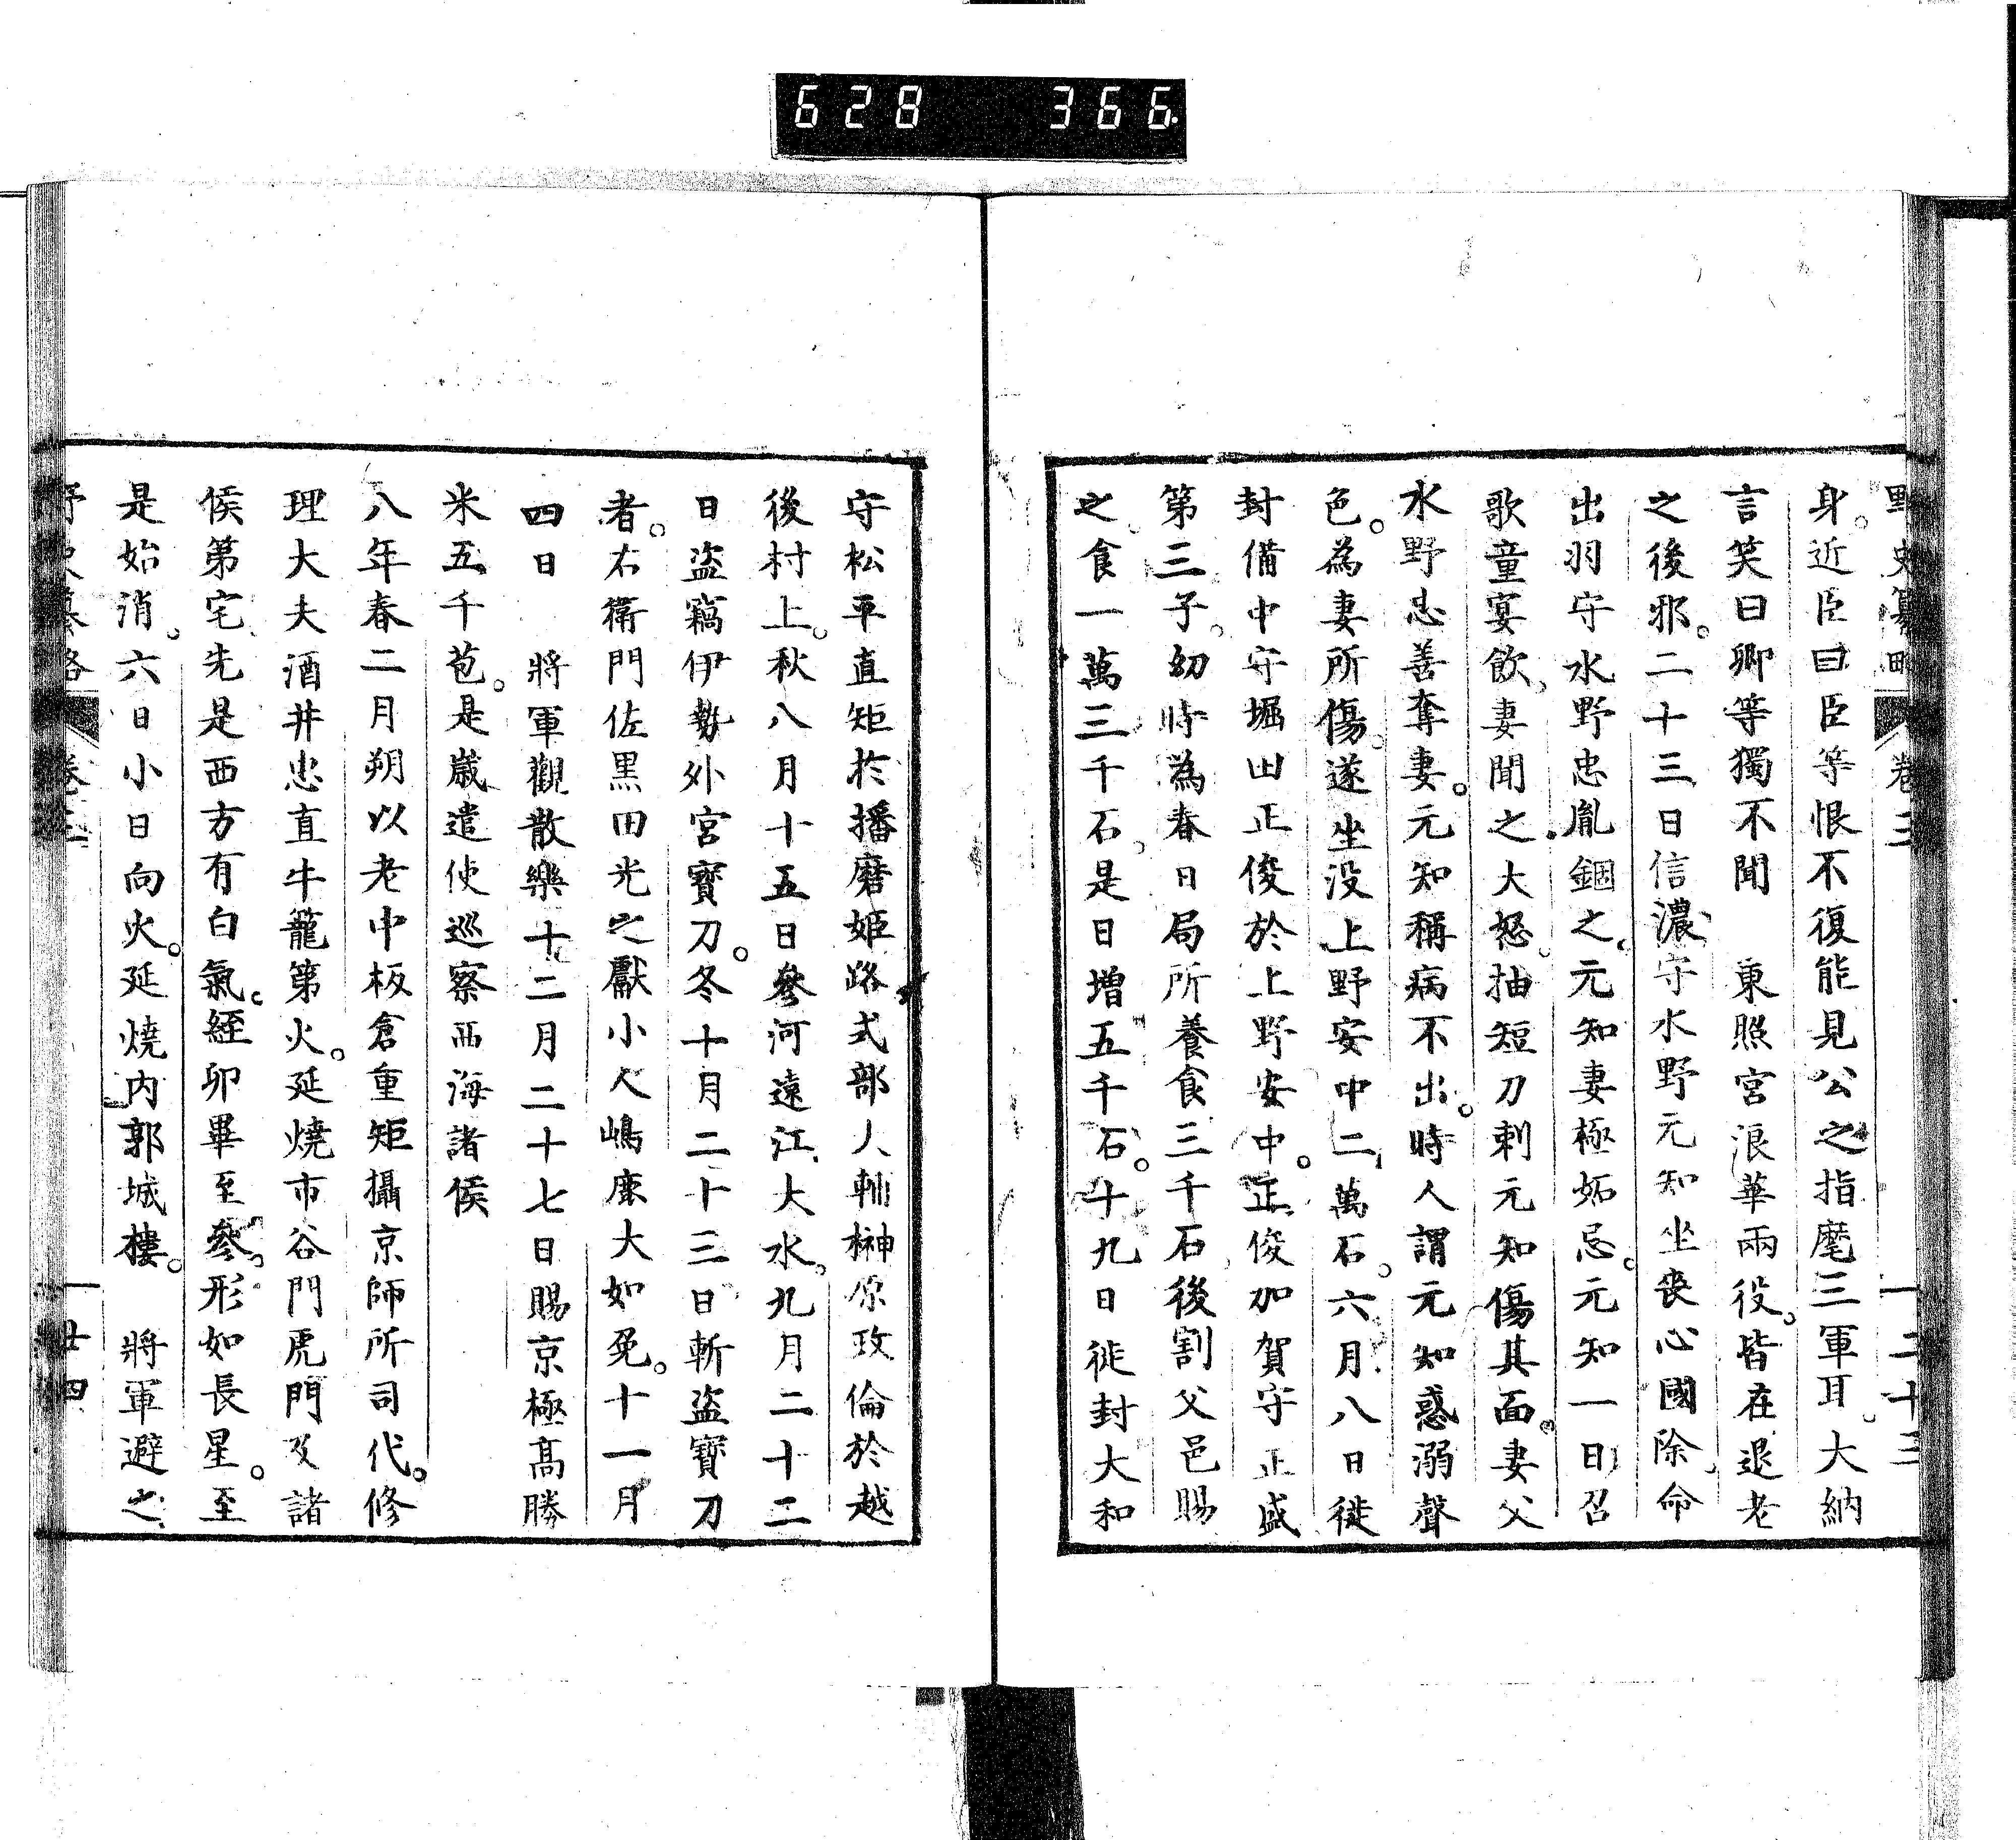 628 366
野史纂略 卷三 二十三
身。近臣曰臣等恨不復能見公之指麾三軍耳。大納
言笑曰卿等獨不聞 東照宮浪華兩役。皆在退老
之後邪。二十三日信濃守水野元知坐喪心國除。命
出羽守水野忠胤錮之。元知妻極妬忌。元知一日召
歌童宴飲。妻聞之大怒。抽短刀刺元知傷其面。妻父
水野忠善奪妻。元知稱病不出。時人謂元知惑溺聲
色。為妻所傷。遂坐没上野安中二萬石。六月八日徙
封備中守堀田正俊於上野安中。正俊加賀守正盛
第三子。幼時為春日局所養食三千石後割父邑賜
之。食一萬三千石。是日增五千石。十九日徙封大和
守松平直矩於播磨姬路式部大輔榊原政倫於越
後村上。秋八月十五日參河遠江大水。九月二十二
日盜竊伊勢外宮寶刀。冬十月二十三日斬盜寶刀
者。右衛門佐黒田光之獻小人嶋鹿大如兔。十一月
四日 將軍觀散樂十二月二十七日賜京極髙勝
米五千苞。是嵗遣使巡察西海諸侯
八年春二月朔以老中板倉重矩攝京師所司代。修
理大夫酒井忠直牛籠第火。延燒市谷門虎門及諸
侯第宅先是西方有白氣。經卯畢至參。形如長星。至
是始消。六日小日向火。延燒内郭城樓。 將軍避之
野史纂略 卷三 廿四